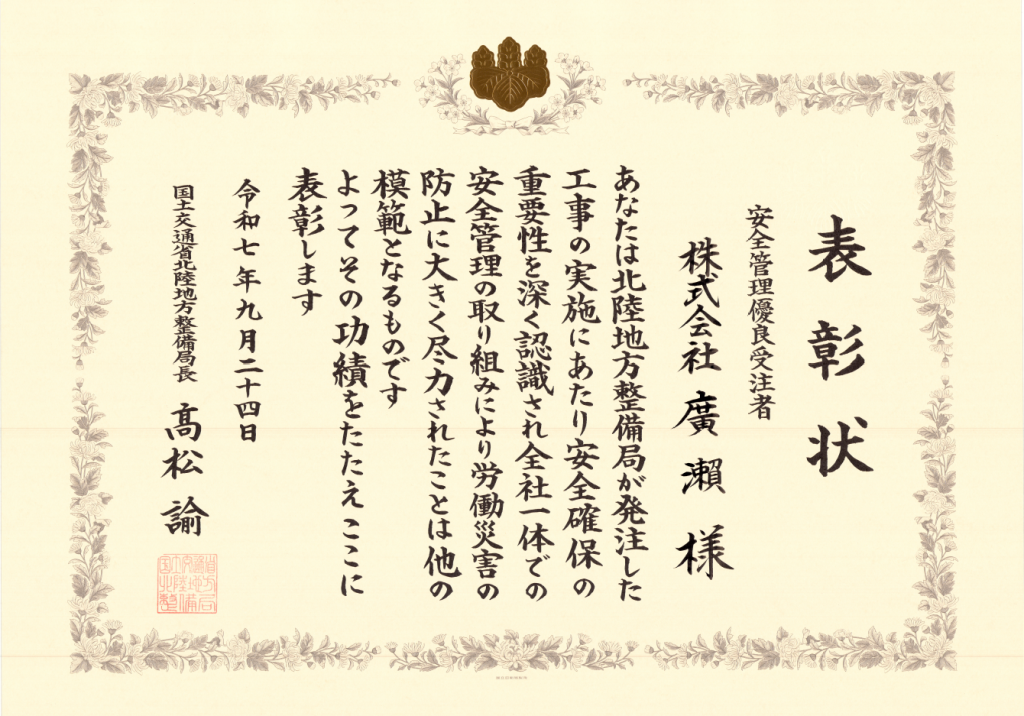 表彰状
安全管理優良受注者
株式会社 廣瀨 様
あなたは北陸地方整備局が発注した
工事の実施にあたり安全確保の
重要性を深く認識され全社一体での
安全管理の取り組みにより労働災害の
防止に大きく尽力されたことは他の
模範となるものです
よってその功績をたたえここに
表彰します
令和七年九月二十四日
国土交通省北陸地方整備局長 髙松 諭